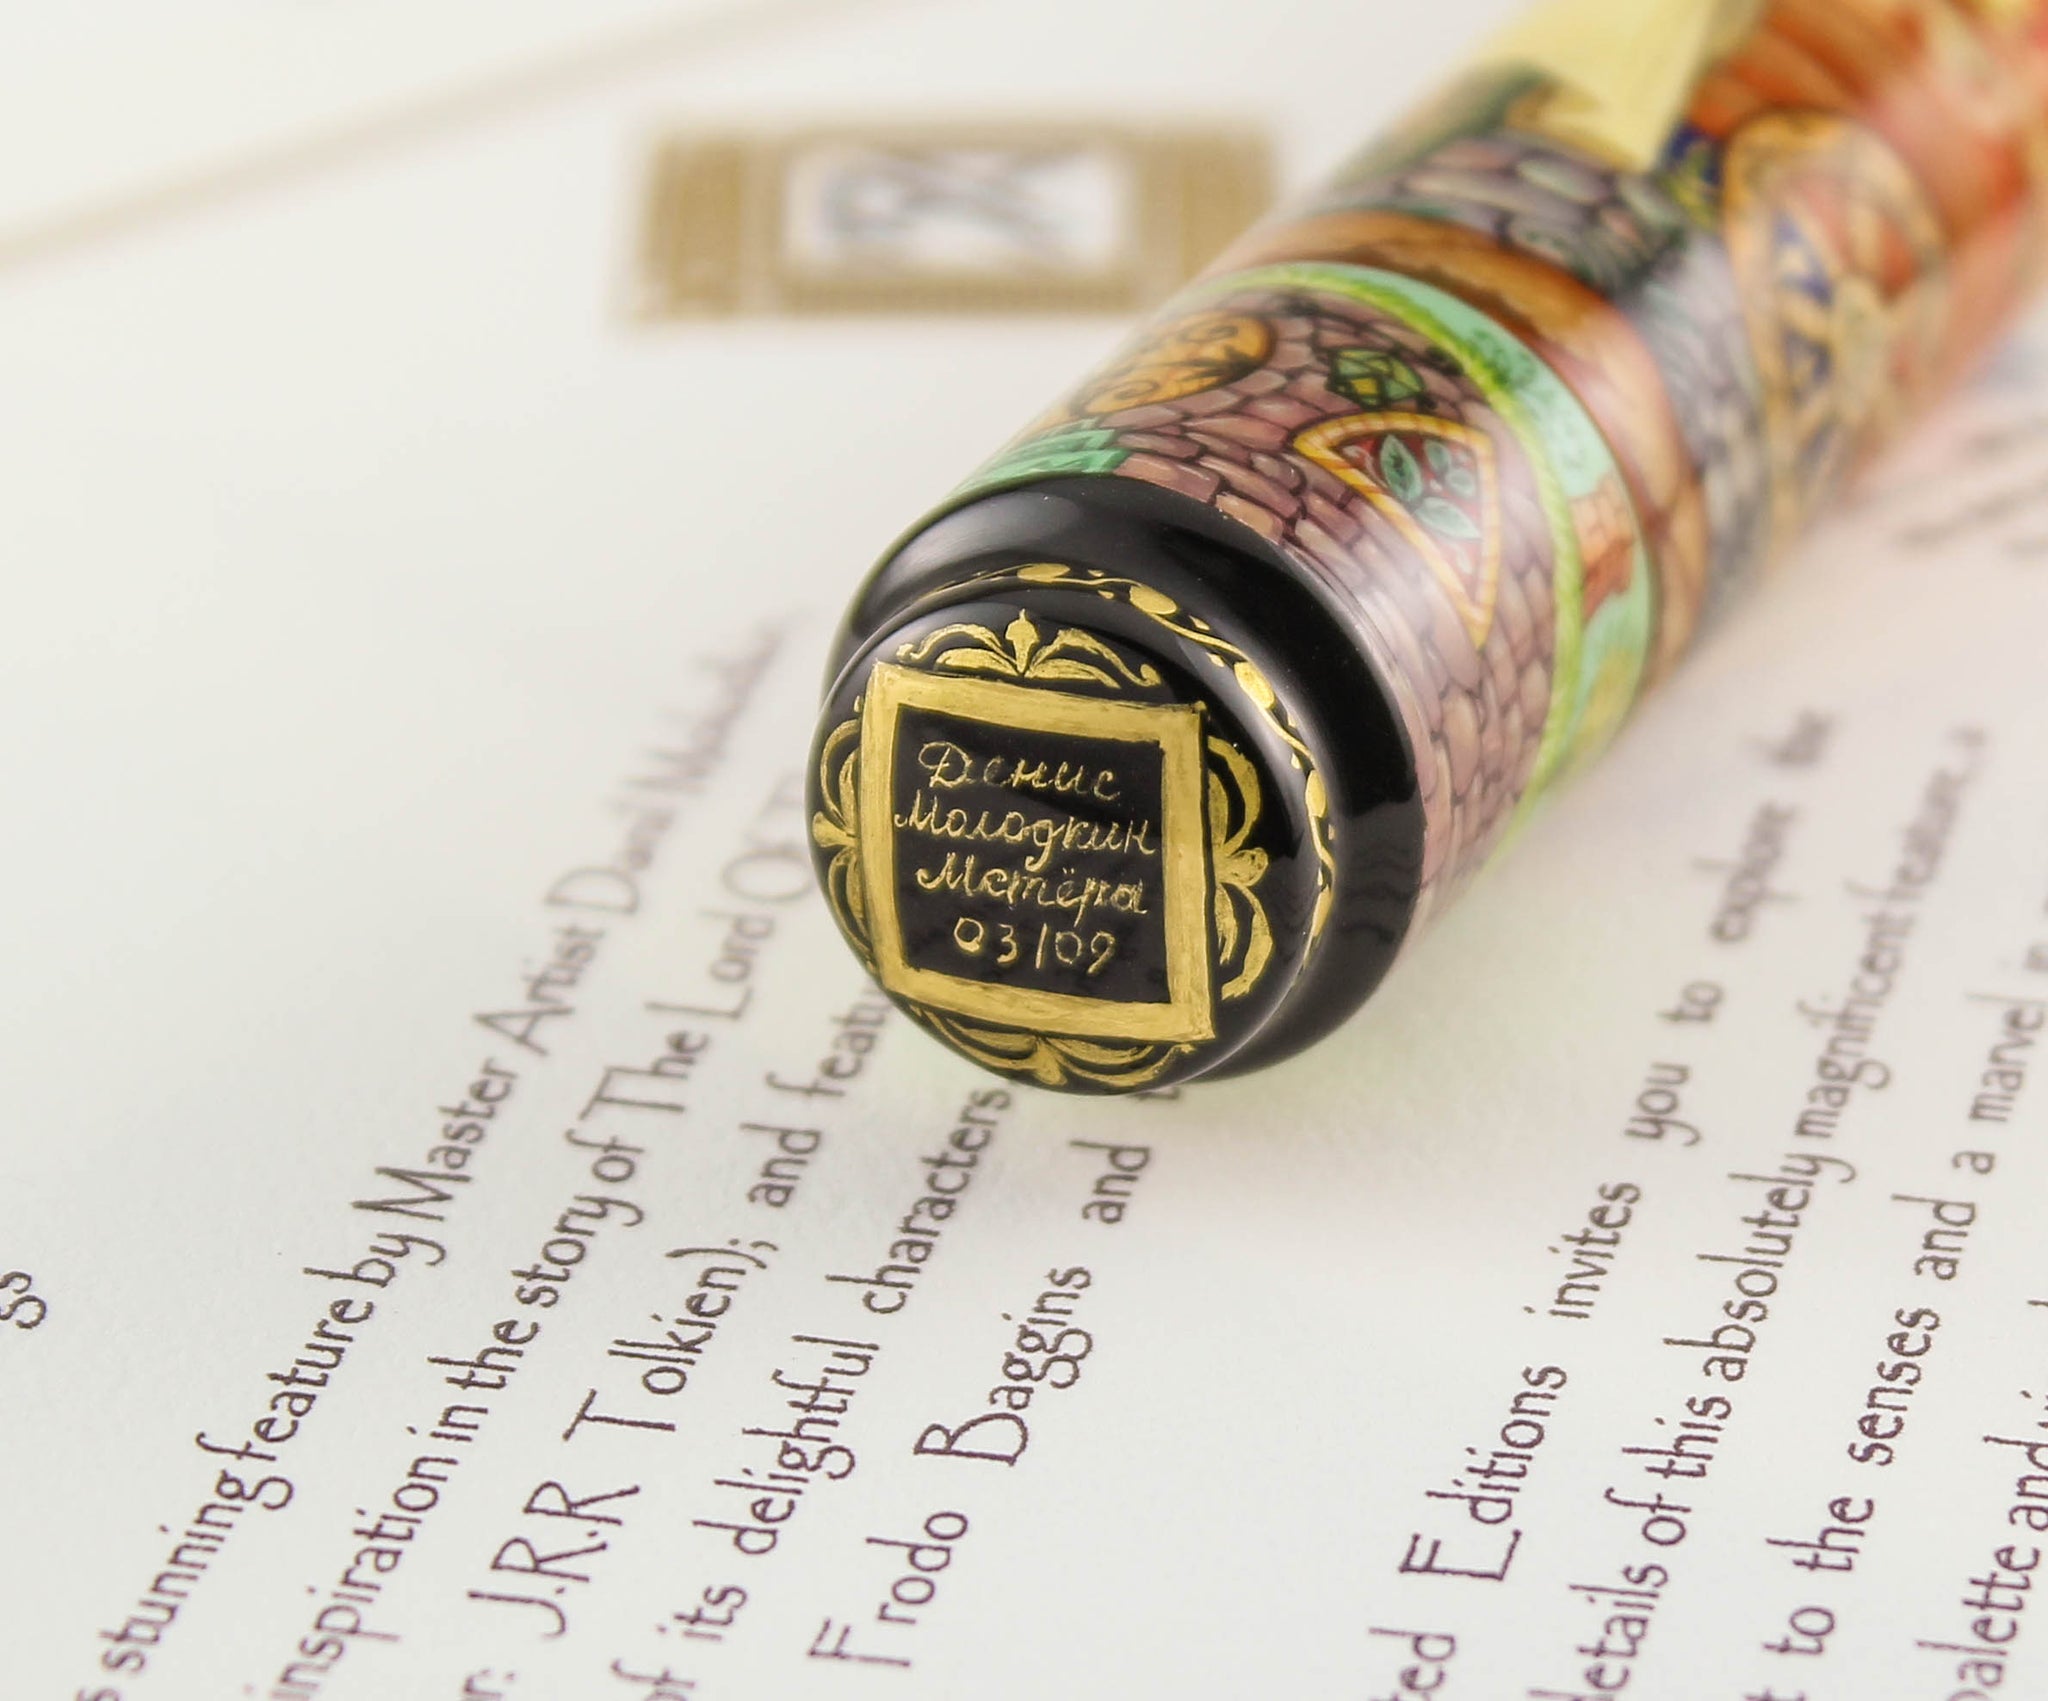 Денис
Молодкин
Мстёра
03/09
gs
s stunning feature by Master Artist
inspiration in the story of The Lord Of T
r: J.R.R Tolkien); and featu
of its delightful characters
Frodo Baggins and t
ted Editions invites you to explore the
details of this absolutely magnificent feature. A
t to the senses and a marvel
palette and